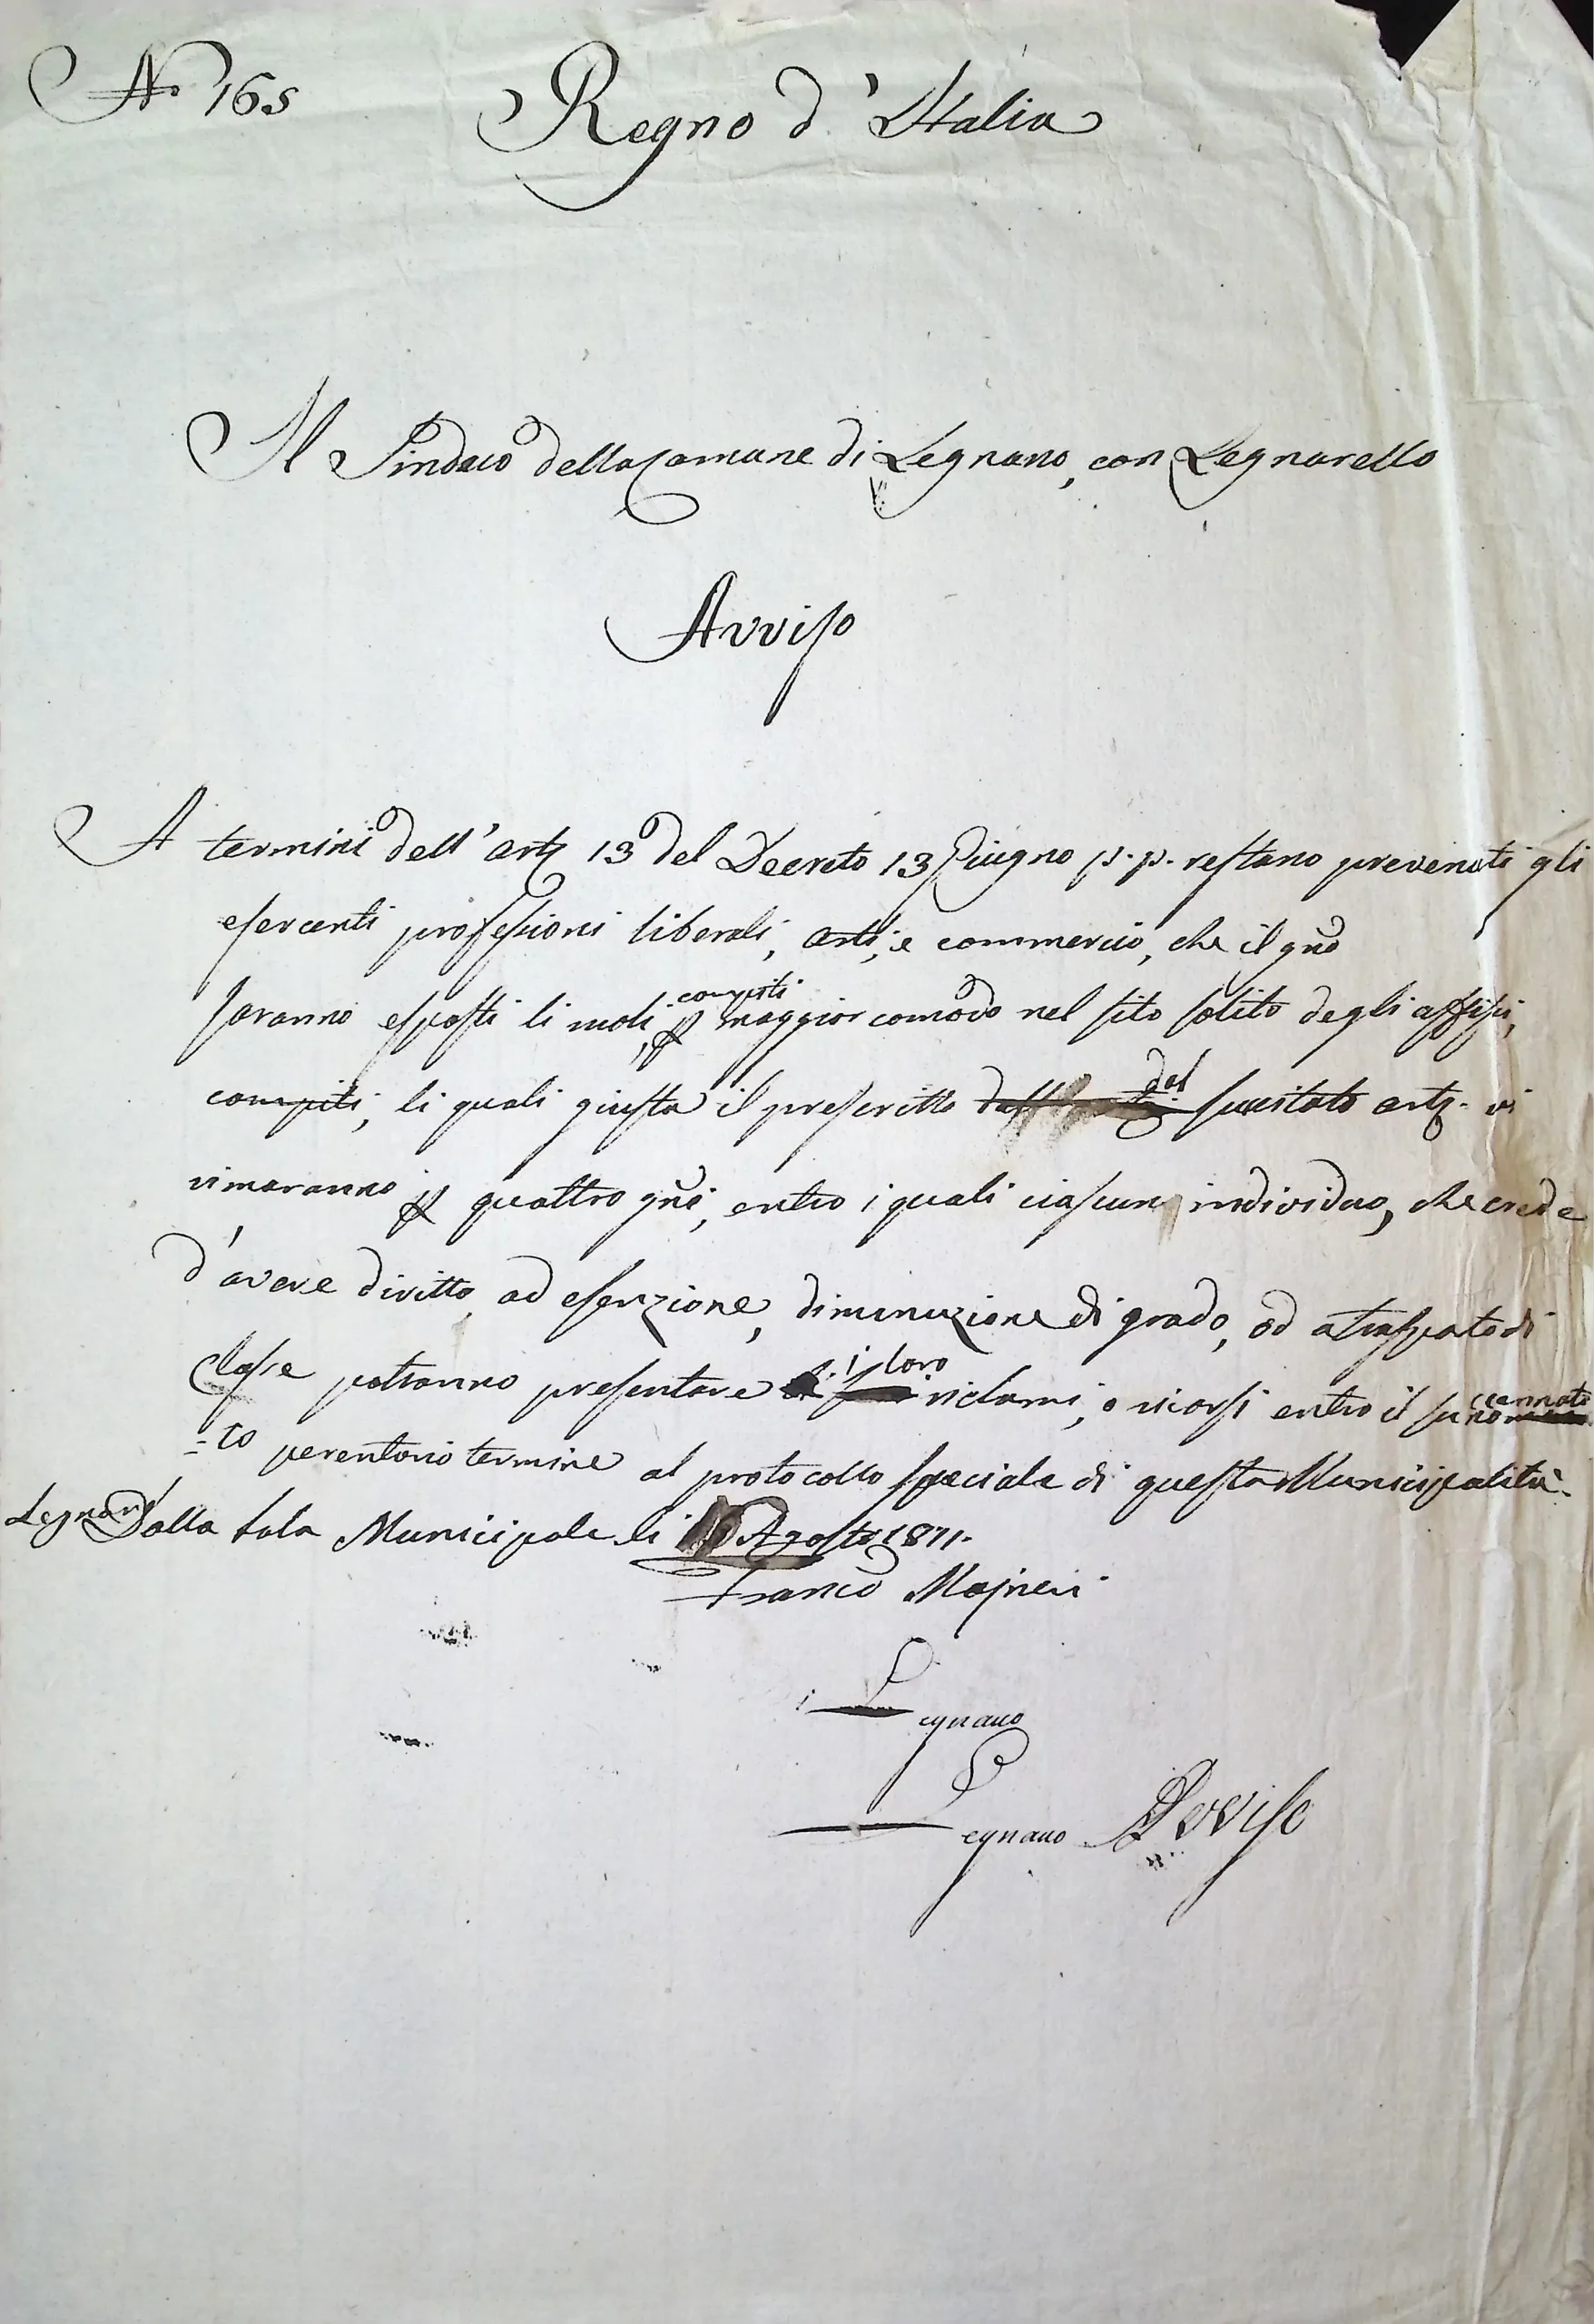 N. 165
Regno d'Italia
Il Sindaco della Comune di Legnano, con Legnarello
Avviso
A termini dell'art. 13 del Decreto 13 Giugno p.p. restano prevenuti gli
esercenti professioni liberali, arti, e commercio, che il gno
compiti
saranno esposti li ruoli, p maggior comodo nel sito solito degli affissi,
compiti, li quali giusta il prescritto dal succitato art. vi
rimaranno p quattro gni, entro i quali ciascun individuo, che crede
d'avere diritto ad esenzione, diminuzione di grado, od a trasporto di
i loro
Classe potranno presentare riclami, o ricorsi entro il su ccennato
=to perentorio termine al protocollo speciale di questa Municipalità.
Legnano Dalla Sala Municipale li Agosto 1811.
Franco Majneri
Legnano
Legnano Avviso